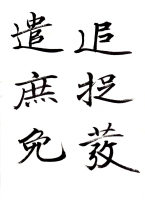 追捉發
遣庶免